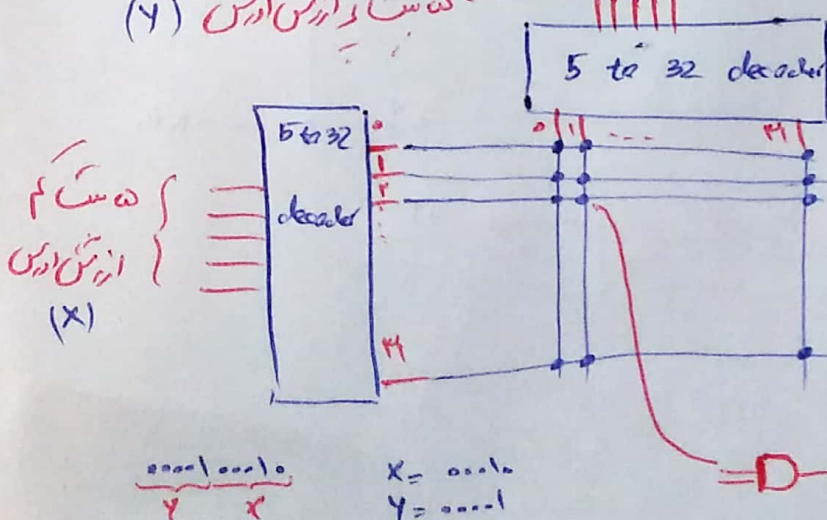 ۵ بیت پر ارزش آدرس (Y)
5 to 32 decoder
5 to 32
decoder
۰
۱
۲
۳۱
۰ ۱ ... ۳۱
۵ بیت کم
ارزش آدرس
(X)
۰۰۰۰۱۰۰۰۱۰
Y X
X = ۰۰۰۱۰
Y = ۰۰۰۰۱